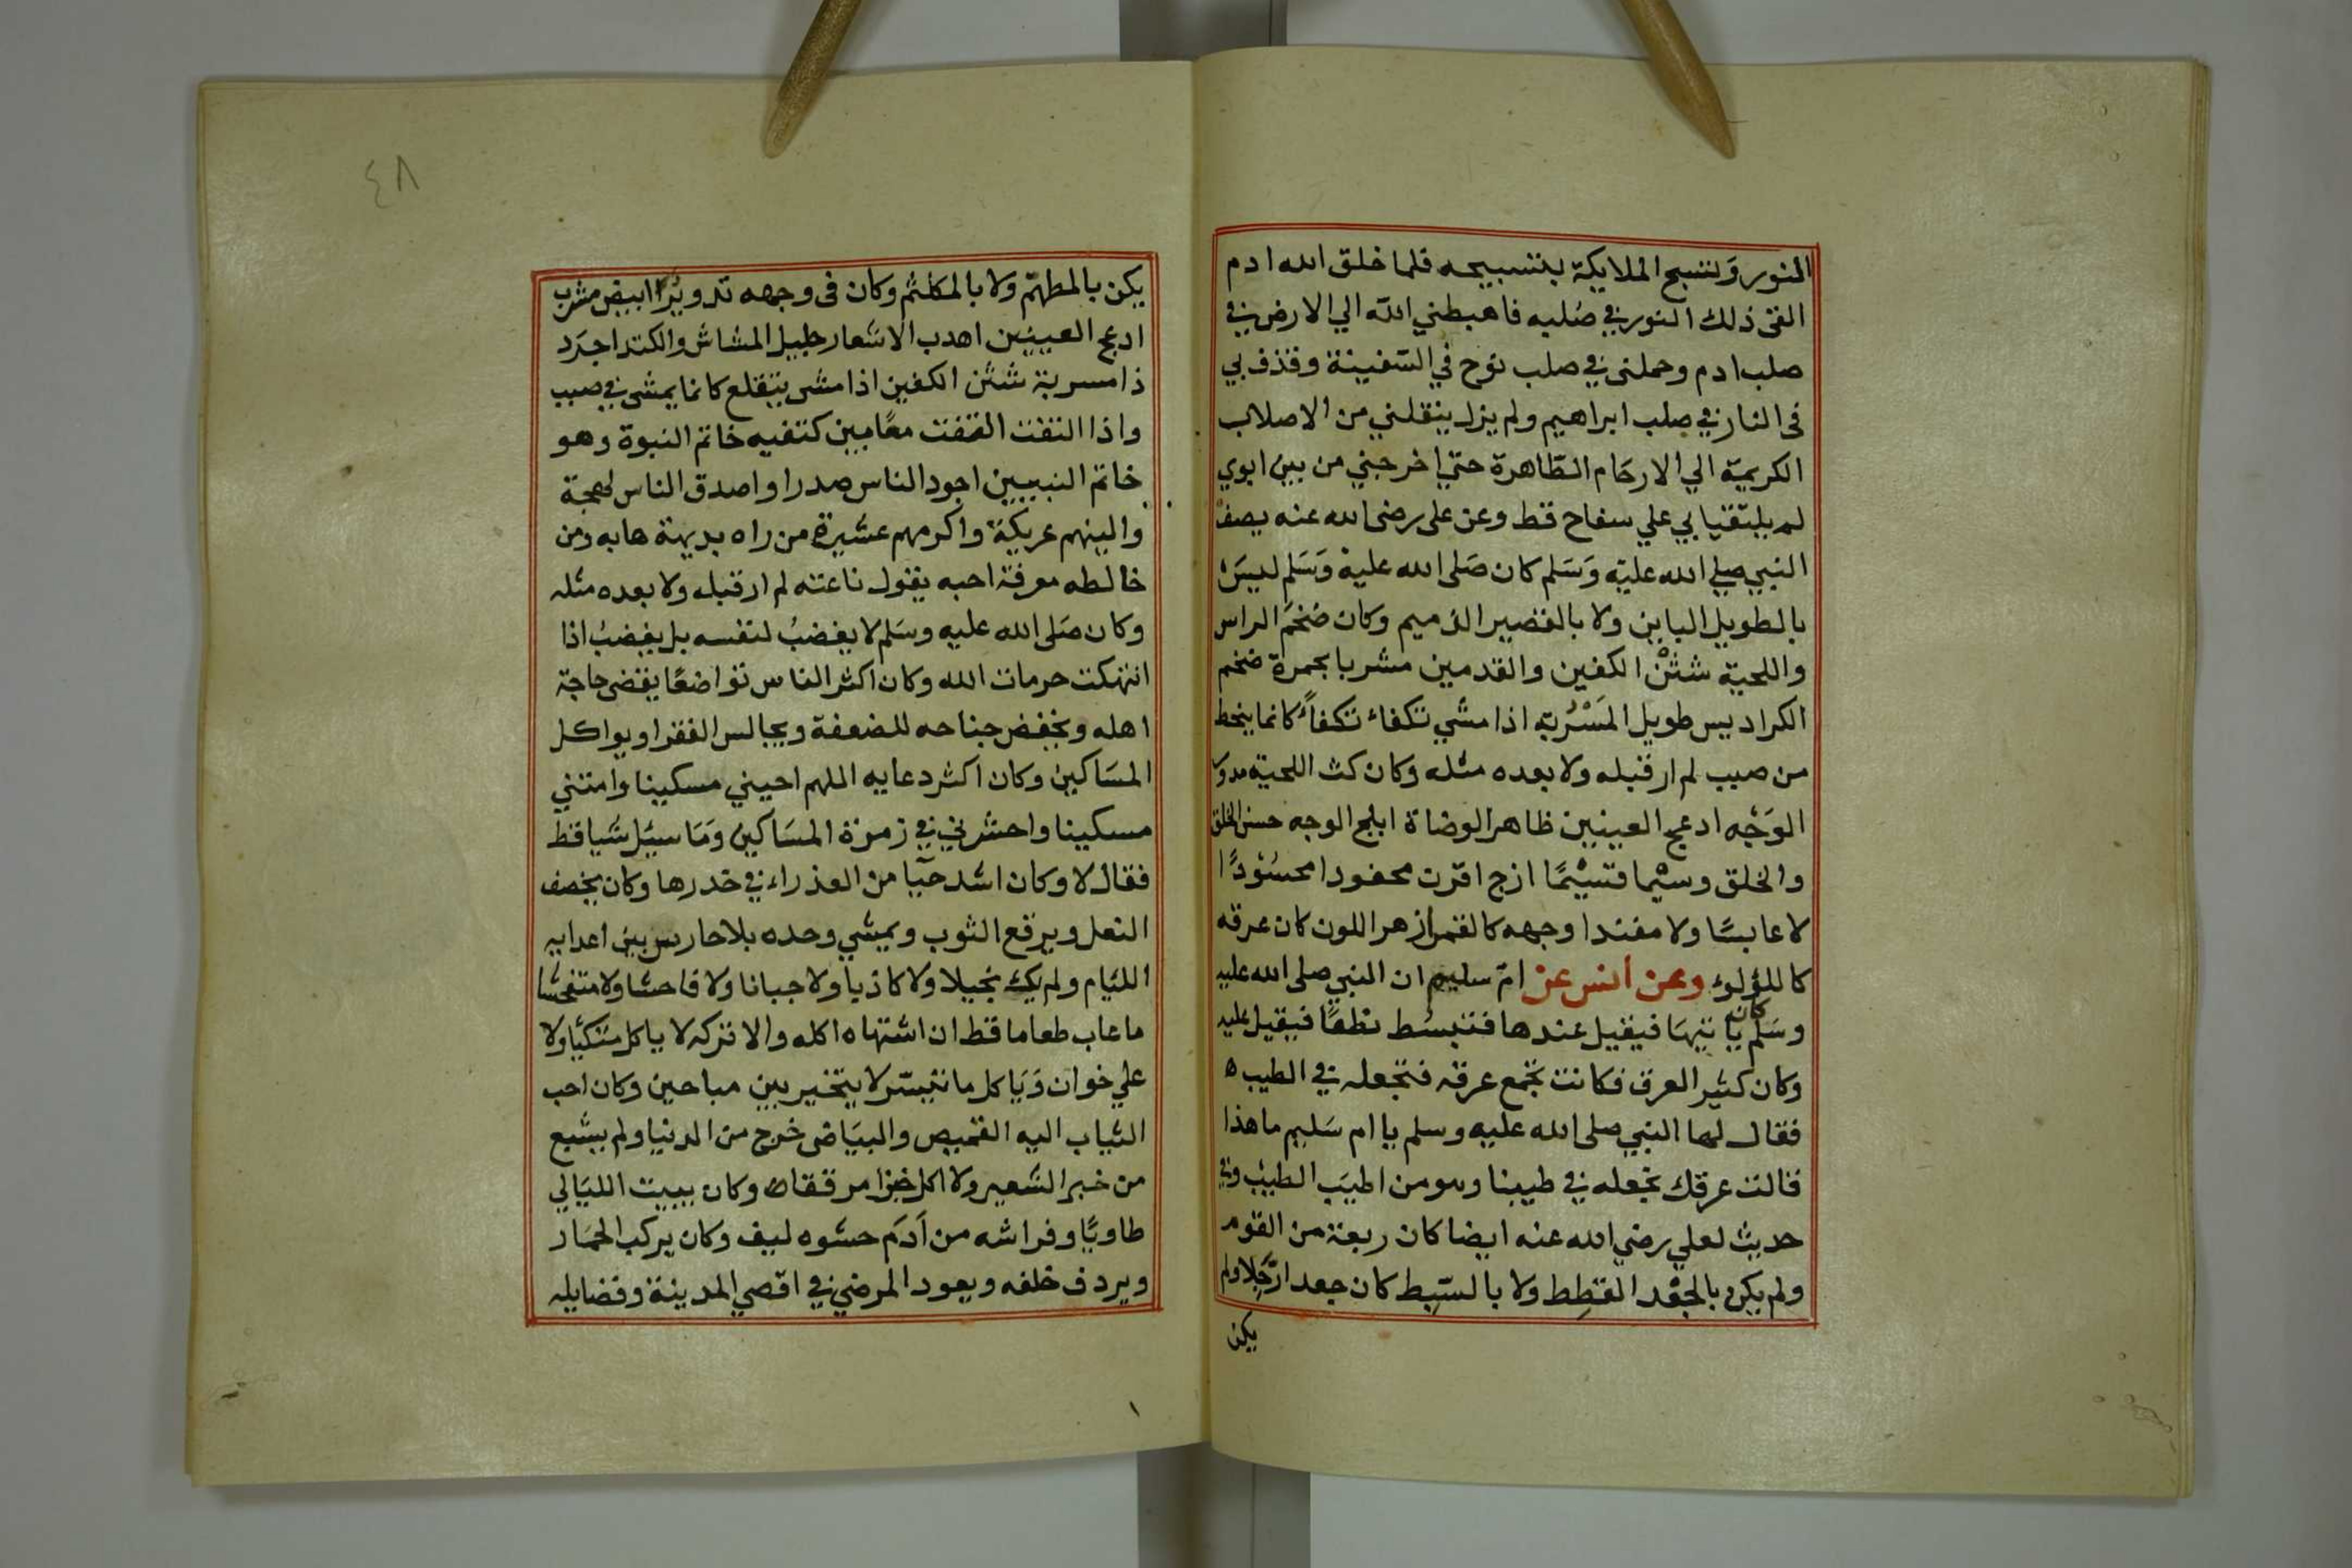 النور وتسبح الملايكة بتسبيحه فلما خلق الله ادم
القى ذلك النور في صُلبه فاهبطني الله الي الارض في
صلب ادم وحملنى في صلب نوح في السّفينة وقذف بي
فى النار في صلب ابراهيم ولم يزل ينقلني من الاصلاب
الكريمة الي الارحام الطّاهرة حتي اخرجني من بين ابوي
لم يلتقيا بي علي سفاح قط وعن على رضى الله عنه يصف
النبي صلي الله عليه وَسَلم كان صَلى الله عليه وَسَلم ليسَ
بالطويل الباين ولا بالقصير الذميم وكان ضخمَ الراس
واللحية شثنْ الكفين والقدمين مشربا بحمرة ضخم
الكراديس طويل المَسْرُبة اذا مشي تكفاء تكفاً كانما ينحط
من صبب لم ار قبله ولا بعده مثله وكان كث اللحية مدور
الوَجْه ادعج العينين ظاهر الوضاة ابلج الوجه حسن الخلق
والخلق وسيْما قسيْمًا ازج اقرن محفودا محسُوْدًا
لا عابسًا ولا مفندا وجهه كالقمر ازهر اللون كان عرقه
كاللؤلؤ وعن أنس عن امّ سليم ان النبي صلى الله عليه
وسَلم كان ياتيهَا فيقيل عندها فتبسُط نطعًا فيقيل عليه
وكان كثير العرق فكانت تجمع عرقه فتجعله في الطيب ه
فقال لها النبي صلى الله عليه وسلم يا ام سَليم ما هذا
قالت عرقك نجعله في طيبنا وهو من اطيَب الطيب وفي
حديث لعلي رضي الله عنه ايضا كان ربعة من القوم
ولم يكن بالجعْد القطِط ولا بالسّبِط كان جعدا رَجِلا ولم
يكن
٤٨
يكن بالمطهّم ولا بالمكلثم وكان فى وجهه تدويرُ ابيض مشرب
ادعج العينين اهدب الاشعار جليل المشاش والكتد اجرَد
ذا مسربة شثن الكفين اذا مشى يتقلع كانما يمشى في صبب
واذا التفت التفت معًا بين كتفيه خاتم النبوة وهو
خاتم النبيين اجود الناس صدرا واصدق الناس لهجة
والينهم عريكة واكرمهم عشيرة من راه بديهة هابه ومن
خالطه معرفة احبه يقول ناعته لم ار قبله ولا بعده مثله
وكان صَلى الله عليه وسَلم لا يغضبُ لنفسه بل يغضبُ اذا
انتهكت حرمات الله وكان اكثر الناس تواضعًا يقضى حاجة
اهله ويخفض جناحه للضعفة ويجالس الفقرا ويواكل
المسَاكين وكان اكثر دعايه اللهم احيني مسكينا وامتني
مسكينا واحشرني في زمرة المسَاكين وَمَا سيئل شيا قط
فقال لا وكان اشد حيَآ من العذراء في خدرها وكان يخصف
النعل ويرقع الثوب ويمشي وحده بلا حارس بين اعدايه
اللئيام ولم يك بخيلا ولا كاذبا ولا جبانا ولا فاحشا ولا متفحشا
ما عاب طعاما قط ان اشتهاه اكله والا تركه لا ياكل متكئيا ولا
علي خوان وَيَاكل ما تيسّر لا يتخير بين مباحين وكان احب
الثياب اليه القميص والبيَاض خرج من الدنيا ولم يشبع
من خبز الشعير ولا اكل خبزا مرققا ه وكان يبيت الليَالي
طاويًا وفراشه من اَدَم حشوه ليف وكان يركب الحمَار
ويردف خلفه ويعود المرضي في اقصي المدينة وفضايله